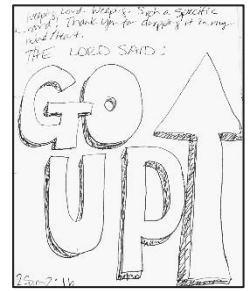 weeping, Lord. Weeping. Such a specific
word! Thank You for dropping it in my
heart.
THE LORD SAID:
GO
UP
2 Sam 2:1b